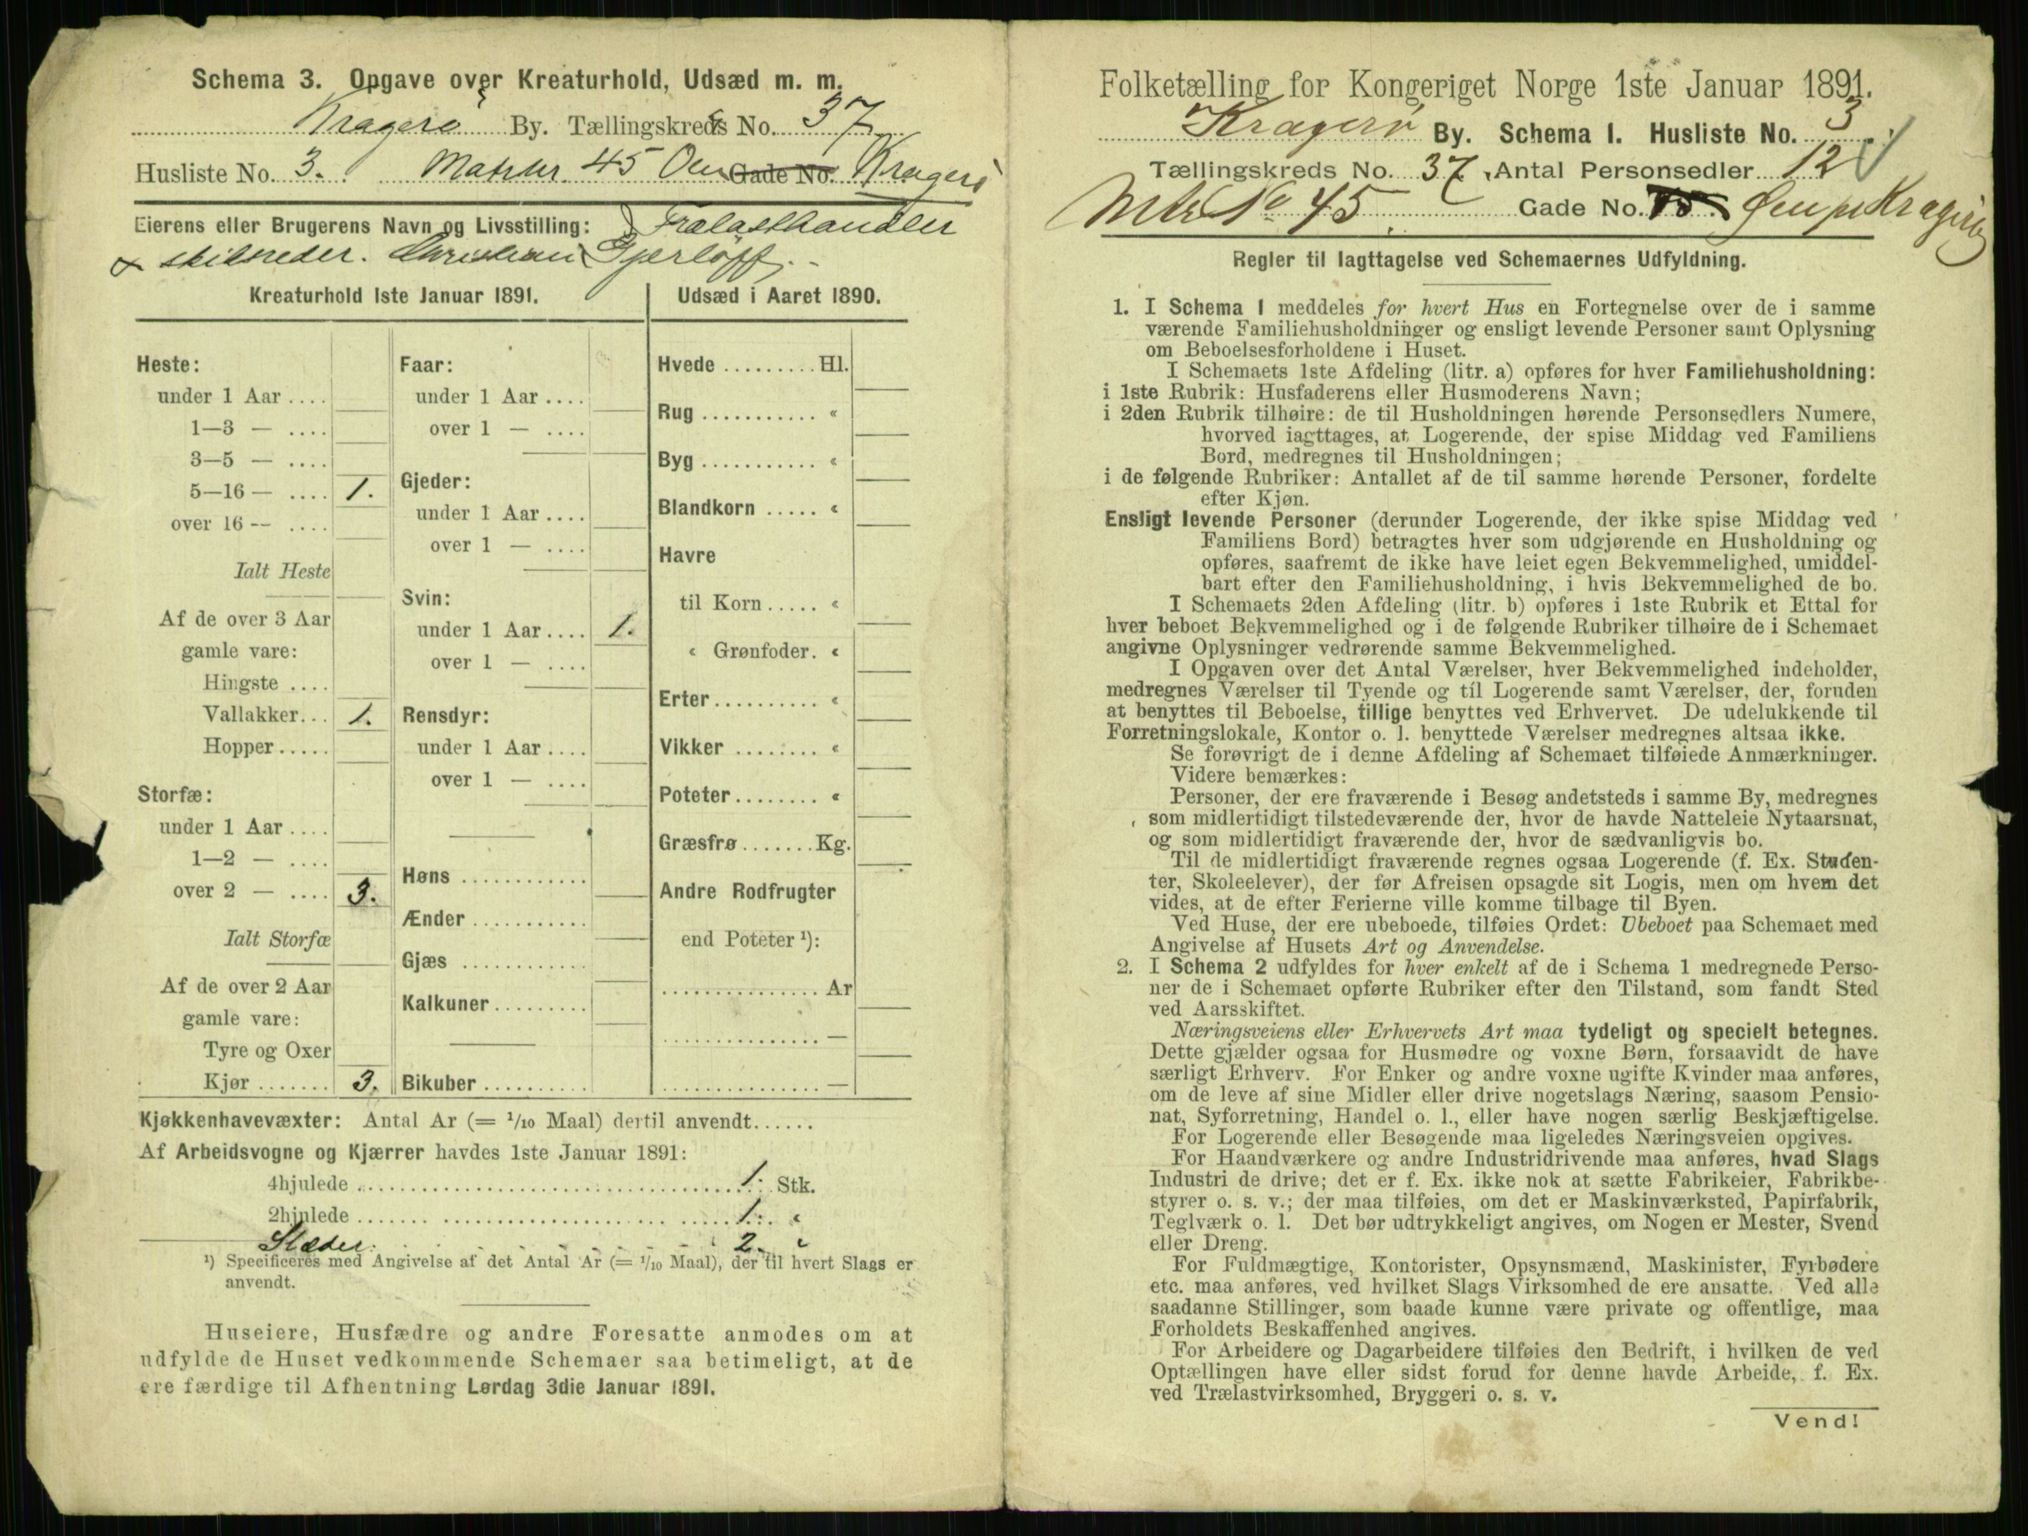 Schema 3. Opgave over Kreaturhold, Udsæd m. m.
Kragerø By. Tællingskreds No. 37
Husliste No. 3. Matrnr. 45 Gade No. Kragerø
Eierens eller Brugerens Navn og Livsstilling: Trælasthandler
& skibsreder. Christian Gjerløff.
Kreaturhold 1ste Januar 1891.
Heste:
under 1 Aar ....
1—3 — ....
3—5 — ....
5—16 — .... 1.
over 16 -- ....
Ialt Heste
Af de over 3 Aar
gamle vare:
Hingste ....
Vallakker... 1.
Hopper.....
Storfæ:
under 1 Aar ....
1—2 — ....
over 2 — .... 3.
Ialt Storfæ
Af de over 2 Aar
gamle vare:
Tyre og Oxer
Kjør ....... 3.
Faar:
under 1 Aar ....
over 1 — ....
Gjeder:
under 1 Aar ....
over 1 — ....
Svin:
under 1 Aar .... 1.
over 1 — ....
Rensdyr:
under 1 Aar ....
over 1 — ....
Høns ............
Ænder ...........
Gjæs ............
Kalkuner.........
Bikuber ..........
Udsæd i Aaret 1890.
Hvede ......... Hl.
Rug ........... «
Byg ........... «
Blandkorn ..... «
Havre
til Korn ..... «
« Grønfoder. «
Erter.......... «
Vikker ........ «
Poteter........ «
Græsfrø ....... Kg.
Andre Rodfrugter
end Poteter ¹):
................ Ar
................ —
................ —
Kjøkkenhavevæxter: Antal Ar (= 1/10 Maal) dertil anvendt......
Af Arbeidsvogne og Kjærrer havdes 1ste Januar 1891:
4hjulede ........................ 1. Stk.
2hjulede ........................ 1. «
Slæder. 2. «
¹) Specificeres med Angivelse af det Antal Ar (= 1/10 Maal), der til hvert Slags er
anvendt.
Huseiere, Husfædre og andre Foresatte anmodes om at
udfylde de Huset vedkommende Schemaer saa betimeligt, at de
ere færdige til Afhentning Lørdag 3die Januar 1891.
Folketælling for Kongeriget Norge 1ste Januar 1891.
Kragerø By. Schema 1. Husliste No. 3.
Tællingskreds No. 37. Antal Personsedler 12
Mtr No 45. Gade No. Kragerø
Regler til Iagttagelse ved Schemaernes Udfyldning.
1. I Schema 1 meddeles for hvert Hus en Fortegnelse over de i samme
værende Familiehusholdninger og ensligt levende Personer samt Oplysning
om Beboelsesforholdene i Huset.
I Schemaets 1ste Afdeling (litr. a) opføres for hver Familiehusholdning:
i 1ste Rubrik: Husfaderens eller Husmoderens Navn;
i 2den Rubrik tilhøire: de til Husholdningen hørende Personsedlers Numere,
hvorved iagttages, at Logerende, der spise Middag ved Familiens
Bord, medregnes til Husholdningen;
i de følgende Rubriker: Antallet af de til samme hørende Personer, fordelte
efter Kjøn.
Ensligt levende Personer (derunder Logerende, der ikke spise Middag ved
Familiens Bord) betragtes hver som udgjørende en Husholdning og
opføres, saafremt de ikke have leiet egen Bekvemmelighed, umiddel-
bart efter den Familiehusholdning, i hvis Bekvemmelighed de bo.
I Schemaets 2den Afdeling (litr. b) opføres i 1ste Rubrik et Ettal for
hver beboet Bekvemmelighed og i de følgende Rubriker tilhøire de i Schemaet
angivne Oplysninger vedrørende samme Bekvemmelighed.
I Opgaven over det Antal Værelser, hver Bekvemmelighed indeholder,
medregnes Værelser til Tyende og til Logerende samt Værelser, der, foruden
at benyttes til Beboelse, tillige benyttes ved Erhvervet. De udelukkende til
Forretningslokale, Kontor o. l. benyttede Værelser medregnes altsaa ikke.
Se forøvrigt de i denne Afdeling af Schemaet tilføiede Anmærkninger.
Videre bemærkes:
Personer, der ere fraværende i Besøg andetsteds i samme By, medregnes
som midlertidigt tilstedeværende der, hvor de havde Natteleie Nytaarsnat,
og som midlertidigt fraværende der, hvor de sædvanligvis bo.
Til de midlertidigt fraværende regnes ogsaa Logerende (f. Ex. Studen-
ter, Skoleelever), der før Afreisen opsagde sit Logis, men om hvem det
vides, at de efter Ferierne ville komme tilbage til Byen.
Ved Huse, der ere ubeboede, tilføies Ordet: Ubeboet paa Schemaet med
Angivelse af Husets Art og Anvendelse.
2. I Schema 2 udfyldes for hver enkelt af de i Schema 1 medregnede Perso-
ner de i Schemaet opførte Rubriker efter den Tilstand, som fandt Sted
ved Aarsskiftet.
Næringsveiens eller Erhvervets Art maa tydeligt og specielt betegnes.
Dette gjælder ogsaa for Husmødre og voxne Børn, forsaavidt de have
særligt Erhverv. For Enker og andre voxne ugifte Kvinder maa anføres,
om de leve af sine Midler eller drive nogetslags Næring, saasom Pensio-
nat, Syforretning, Handel o. l., eller have nogen særlig Beskjæftigelse.
For Logerende eller Besøgende maa ligeledes Næringsveien opgives.
For Haandværkere og andre Industridrivende maa anføres, hvad Slags
Industri de drive; det er f. Ex. ikke nok at sætte Fabrikeier, Fabrikbe-
styrer o. s. v.; der maa tilføies, om det er Maskinværksted, Papirfabrik,
Teglværk o. l. Det bør udtrykkeligt angives, om Nogen er Mester, Svend
eller Dreng.
For Fuldmægtige, Kontorister, Opsynsmænd, Maskinister, Fyrbødere
etc. maa anføres, ved hvilket Slags Virksomhed de ere ansatte. Ved alle
saadanne Stillinger, som baade kunne være private og offentlige, maa
Forholdets Beskaffenhed angives.
For Arbeidere og Dagarbeidere tilføies den Bedrift, i hvilken de ved
Optællingen have eller sidst forud for denne havde Arbeide, f. Ex.
ved Trælastvirksomhed, Bryggeri o. s. v.
Vend!